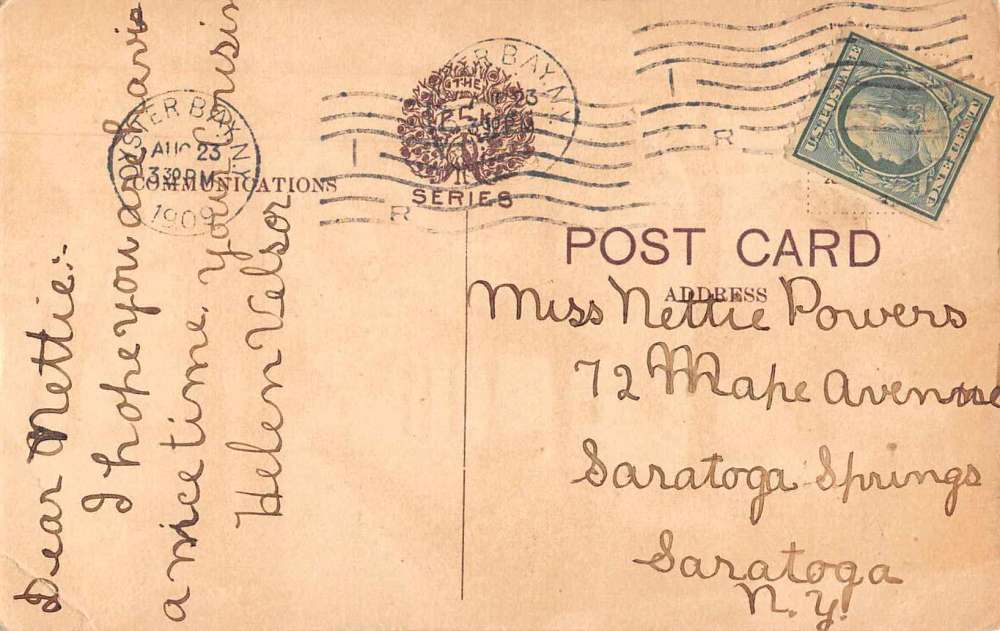 Dear Nettie:-
I hope you are having
a nice time. Your Cousin
Helen Velsor
OYSTER BAY, N.Y.
AUG 23
3 30 PM
1909
COMMUNICATIONS
THE
SERIES
R BAY, N.Y.
23
I
R
I
R
U.S. POSTAGE
ONE CENT
POST CARD
ADDRESS
Miss Nettie Powers
72 Mape Avenue
Saratoga Springs
Saratoga
N.Y.